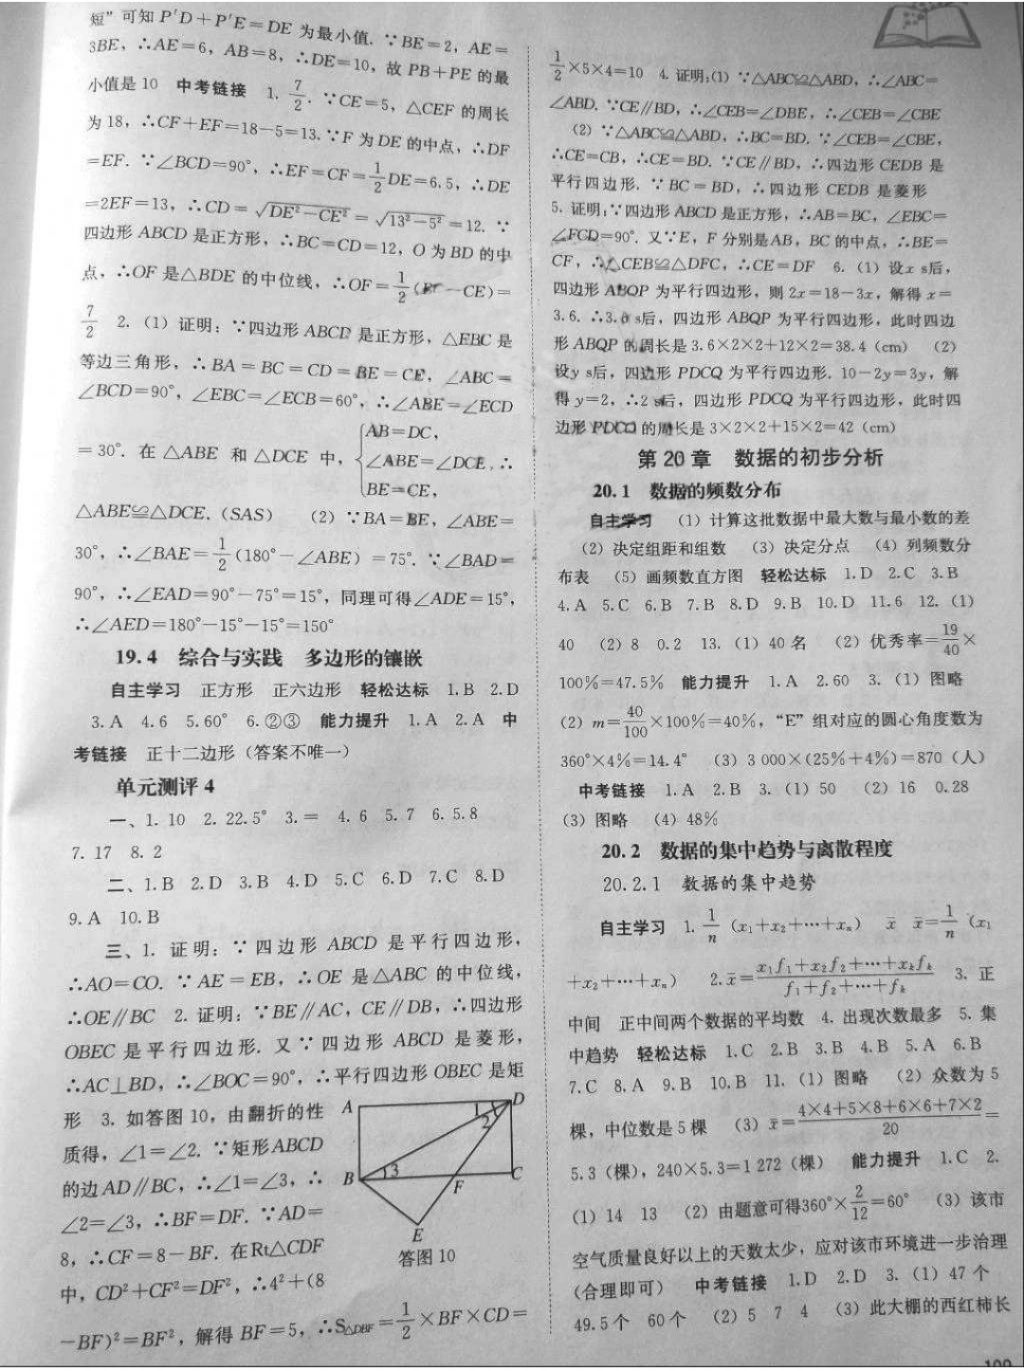 短”可知 P′D＋P′E＝DE 为最小值. ∵BE＝2，AE＝
3BE，∴AE＝6，AB＝8，∴DE＝10，故 PB＋PE 的最
小值是 10 中考链接 1. 7/2. ∵CE＝5，△CEF 的周长
为 18，∴CF＋EF＝18－5＝13. ∵F 为 DE 的中点，∴DF
＝EF. ∵∠BCD＝90°，∴EF＝CF＝1/2DE＝6.5，∴DE
＝2EF＝13，∴CD＝√(DE²－CE²)＝√(13²－5²)＝12. ∵
四边形 ABCD 是正方形，∴BC＝CD＝12，O 为 BD 的中
点，∴OF 是△BDE 的中位线，∴OF＝1/2( －CE)＝
7/2 2. (1) 证明：∵四边形 ABCD 是正方形，△EBC 是
等边三角形，∴BA＝BC＝CD＝BE＝CE，∠ABC＝
∠BCD＝90°，∠EBC＝∠ECB＝60°，∴∠ABE＝∠ECD
＝30°. 在 △ABE 和 △DCE 中，{AB＝DC，
∠ABE＝∠DCE，∴
BE＝CE，
△ABE≌△DCE.（SAS） (2) ∵BA＝BE，∠ABE＝
30°，∴∠BAE＝1/2(180°－∠ABE)＝75°. ∵∠BAD＝
90°，∴∠EAD＝90°－75°＝15°，同理可得∠ADE＝15°，
∴∠AED＝180°－15°－15°＝150°
19.4 综合与实践 多边形的镶嵌
自主学习 正方形 正六边形 轻松达标 1.B 2.D
3.A 4.6 5.60° 6.②③ 能力提升 1.A 2.A 中
考链接 正十二边形（答案不唯一）
单元测评 4
一、1. 10 2. 22.5° 3. ＝ 4. 6 5. 7 6. 5.8
7. 17 8. 2
二、1.B 2.D 3.B 4.D 5.C 6.D 7.C 8.D
9. A 10. B
三、1. 证明：∵四边形 ABCD 是平行四边形，
∴AO＝CO. ∵AE＝EB，∴OE 是△ABC 的中位线，
∴OE∥BC 2. 证明：∵BE∥AC，CE∥DB，∴四边形
OBEC 是平行四边形. 又∵四边形 ABCD 是菱形，
∴AC⊥BD，∴∠BOC＝90°，∴平行四边形 OBEC 是矩
形 3. 如答图 10，由翻折的性
质得，∠1＝∠2. ∵矩形ABCD
的边 AD∥BC，∴∠1＝∠3，∴
∠2＝∠3，∴BF＝DF. ∵AD＝
8，∴CF＝8－BF. 在Rt△CDF
中，CD²＋CF²＝DF²，∴4²＋(8
－BF)²＝BF²，解得 BF＝5，∴S△DBF＝1/2×BF×CD＝
A
D
1
2
B
3
F
C
E
答图 10
1/2×5×4＝10 4. 证明：(1) ∵△ABC≌△ABD，∴∠ABC＝
∠ABD. ∵CE∥BD，∴∠CEB＝∠DBE，∴∠CEB＝∠CBE
(2) ∵△ABC≌△ABD，∴BC＝BD. ∵∠CEB＝∠CBE，
∴CE＝CB，∴CE＝BD. ∵CE∥BD，∴四边形 CEDB 是
平行四边形. ∵BC＝BD，∴四边形 CEDB 是菱形
5. 证明：∵四边形 ABCD 是正方形，∴AB＝BC，∠EBC＝
∠FCD＝90°. 又∵E，F 分别是 AB，BC 的中点，∴BE＝
CF，∴△CEB≌△DFC，∴CE＝DF 6. (1) 设 x s后，
四边形 ABQP 为平行四边形，则 2x＝18－3x，解得 x＝
3.6. ∴3.6 s后，四边形 ABQP 为平行四边形，此时四边
形 ABQP 的周长是 3.6×2×2＋12×2＝38.4（cm） (2)
设 y s后，四边形 PDCQ 为平行四边形. 10－2y＝3y，解
得 y＝2，∴2 s后，四边形 PDCQ 为平行四边形，此时四
边形 PDCQ 的周长是 3×2×2＋15×2＝42（cm）
第 20 章 数据的初步分析
20.1 数据的频数分布
自主学习 (1) 计算这批数据中最大数与最小数的差
(2) 决定组距和组数 (3) 决定分点 (4) 列频数分
布表 (5) 画频数直方图 轻松达标 1.D 2.C 3.B
4.A 5.C 6.B 7.B 8.D 9.B 10.D 11.6 12. (1)
40 (2) 8 0.2 13. (1) 40 名 (2) 优秀率＝19/40×
100％＝47.5％ 能力提升 1.A 2.60 3. (1) 图略
(2) m＝40/100×100％＝40％，“E”组对应的圆心角度数为
360°×4％＝14.4° (3) 3 000×(25％＋4％)＝870（人）
中考链接 1.A 2.B 3. (1) 50 (2) 16 0.28
(3) 图略 (4) 48％
20.2 数据的集中趋势与离散程度
20.2.1 数据的集中趋势
自主学习 1. 1/n (x₁＋x₂＋⋯＋xₙ) x̄ x̄＝1/n (x₁
＋x₂＋⋯＋xₙ) 2. x̄＝(x₁f₁＋x₂f₂＋⋯＋xₖfₖ)/(f₁＋f₂＋⋯＋fₖ) 3. 正
中间 正中间两个数据的平均数 4. 出现次数最多 5. 集
中趋势 轻松达标 1.C 2.B 3.B 4.B 5.A 6.B
7.C 8.A 9.B 10.B 11. (1) 图略 (2) 众数为 5
棵，中位数是 5 棵 (3) x̄＝(4×4＋5×8＋6×6＋7×2)/20＝
5.3（棵），240×5.3＝1 272（棵） 能力提升 1.C 2.
(1) 14 13 (2) 由题意可得360°×2/12＝60° (3) 该市
空气质量良好以上的天数太少，应对该市环境进一步治理
（合理即可） 中考链接 1.D 2.D 3. (1) 47 个
49.5 个 60 个 (2) 5 7 4 (3) 此大棚的西红柿长